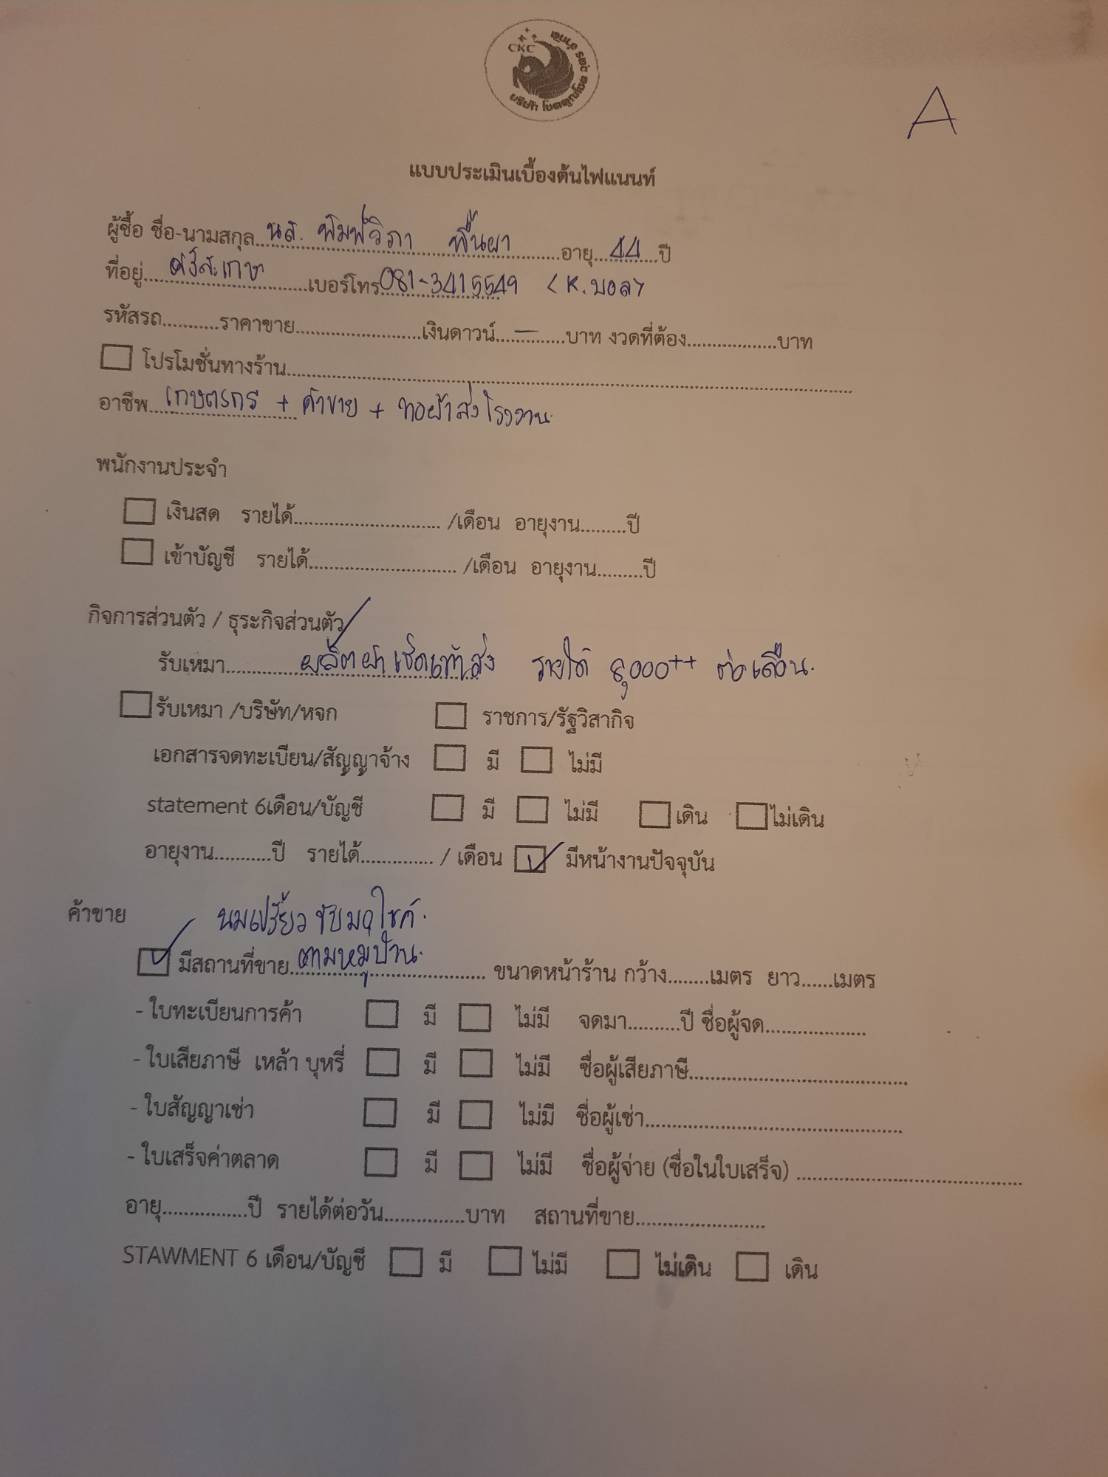 CKC
A
แบบประเมินเบื้องต้นไฟแนนท์
ผู้ซื้อ ชื่อ-นามสกุล นส. พิมพ์วิภา พื้นผา อายุ 44 ปี
ที่อยู่ ศรีสะเกษ เบอร์โทร 081-3415549 <K.บอล>
รหัสรถ..........ราคาขาย......................เงินดาวน์ — บาท งวดที่ต้อง................บาท
☐ โปรโมชั่นทางร้าน
อาชีพ เกษตรกร + ค้าขาย + ทอผ้าส่งโรงงาน
พนักงานประจำ
☐ เงินสด รายได้.......................... /เดือน อายุงาน........ปี
☐ เข้าบัญชี รายได้.......................... /เดือน อายุงาน........ปี
กิจการส่วนตัว / ธุระกิจส่วนตัว
รับเหมา ผลิตผ้าเช็ดเท้าส่ง รายได้ 8,000++ ต่อเดือน.
☐ รับเหมา /บริษัท/หจก ☐ ราชการ/รัฐวิสากิจ
เอกสารจดทะเบียน/สัญญาจ้าง ☐ มี ☐ ไม่มี
statement 6เดือน/บัญชี ☐ มี ☐ ไม่มี ☐ เดิน ☐ ไม่เดิน
อายุงาน..........ปี รายได้............. / เดือน ☑ มีหน้างานปัจจุบัน
ค้าขาย นมเปรี้ยว ขับมอไซค์.
☑ มีสถานที่ขาย ตามหมู่บ้าน. ขนาดหน้าร้าน กว้าง.......เมตร ยาว......เมตร
- ใบทะเบียนการค้า ☐ มี ☐ ไม่มี จดมา.........ปี ชื่อผู้จด..................
- ใบเสียภาษี เหล้า บุหรี่ ☐ มี ☐ ไม่มี ชื่อผู้เสียภาษี......................................
- ใบสัญญาเช่า ☐ มี ☐ ไม่มี ชื่อผู้เช่า.............................................
- ใบเสร็จค่าตลาด ☐ มี ☐ ไม่มี ชื่อผู้จ่าย (ชื่อในใบเสร็จ) .......................................
อายุ...............ปี รายได้ต่อวัน..............บาท สถานที่ขาย.......................
STAWMENT 6 เดือน/บัญชี ☐ มี ☐ ไม่มี ☐ ไม่เดิน ☐ เดิน